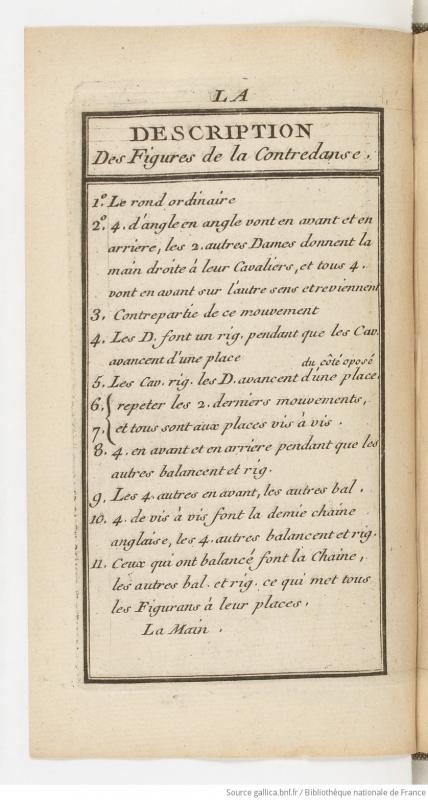 LA
DESCRIPTION
Des Figures de la Contredanse.
1.º Le rond ordinaire
2.º 4. d'angle en angle vont en avant et en
arriere, les 2. autres Dames donnent la
main droite à leur Cavaliers, et tous 4.
vont en avant sur l'autre sens et reviennent
3. Contrepartie de ce mouvement
4. Les D. font un rig. pendant que les Cav.
avancent d'une place
du côté oposé
5. Les Cav. rig. les D. avancent d'une place.
6. repeter les 2. derniers mouvements,
7. et tous sont aux places vis à vis.
8. 4. en avant et en arriere pendant que les
autres balancent et rig.
9. Les 4. autres en avant, les autres bal.
10. 4. de vis à vis font la demie chaine
anglaise, les 4. autres balancent et rig.
11. Ceux qui ont balancé font la Chaine,
les autres bal. et rig. ce qui met tous
les Figurans à leur places.
La Main.
Source gallica.bnf.fr / Bibliothèque nationale de France